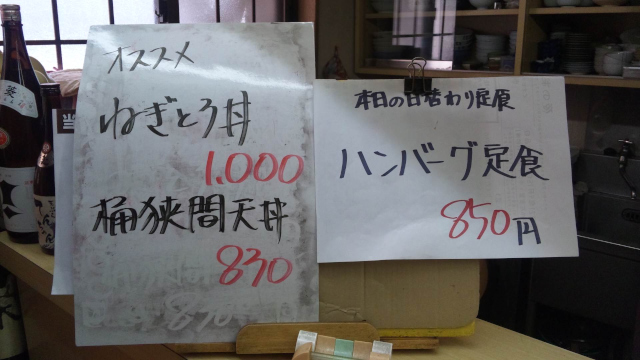 オススメ
ねぎとろ丼
1.000
桶狭間天丼
830
本日の日替わり定食
ハンバーグ定食
850円